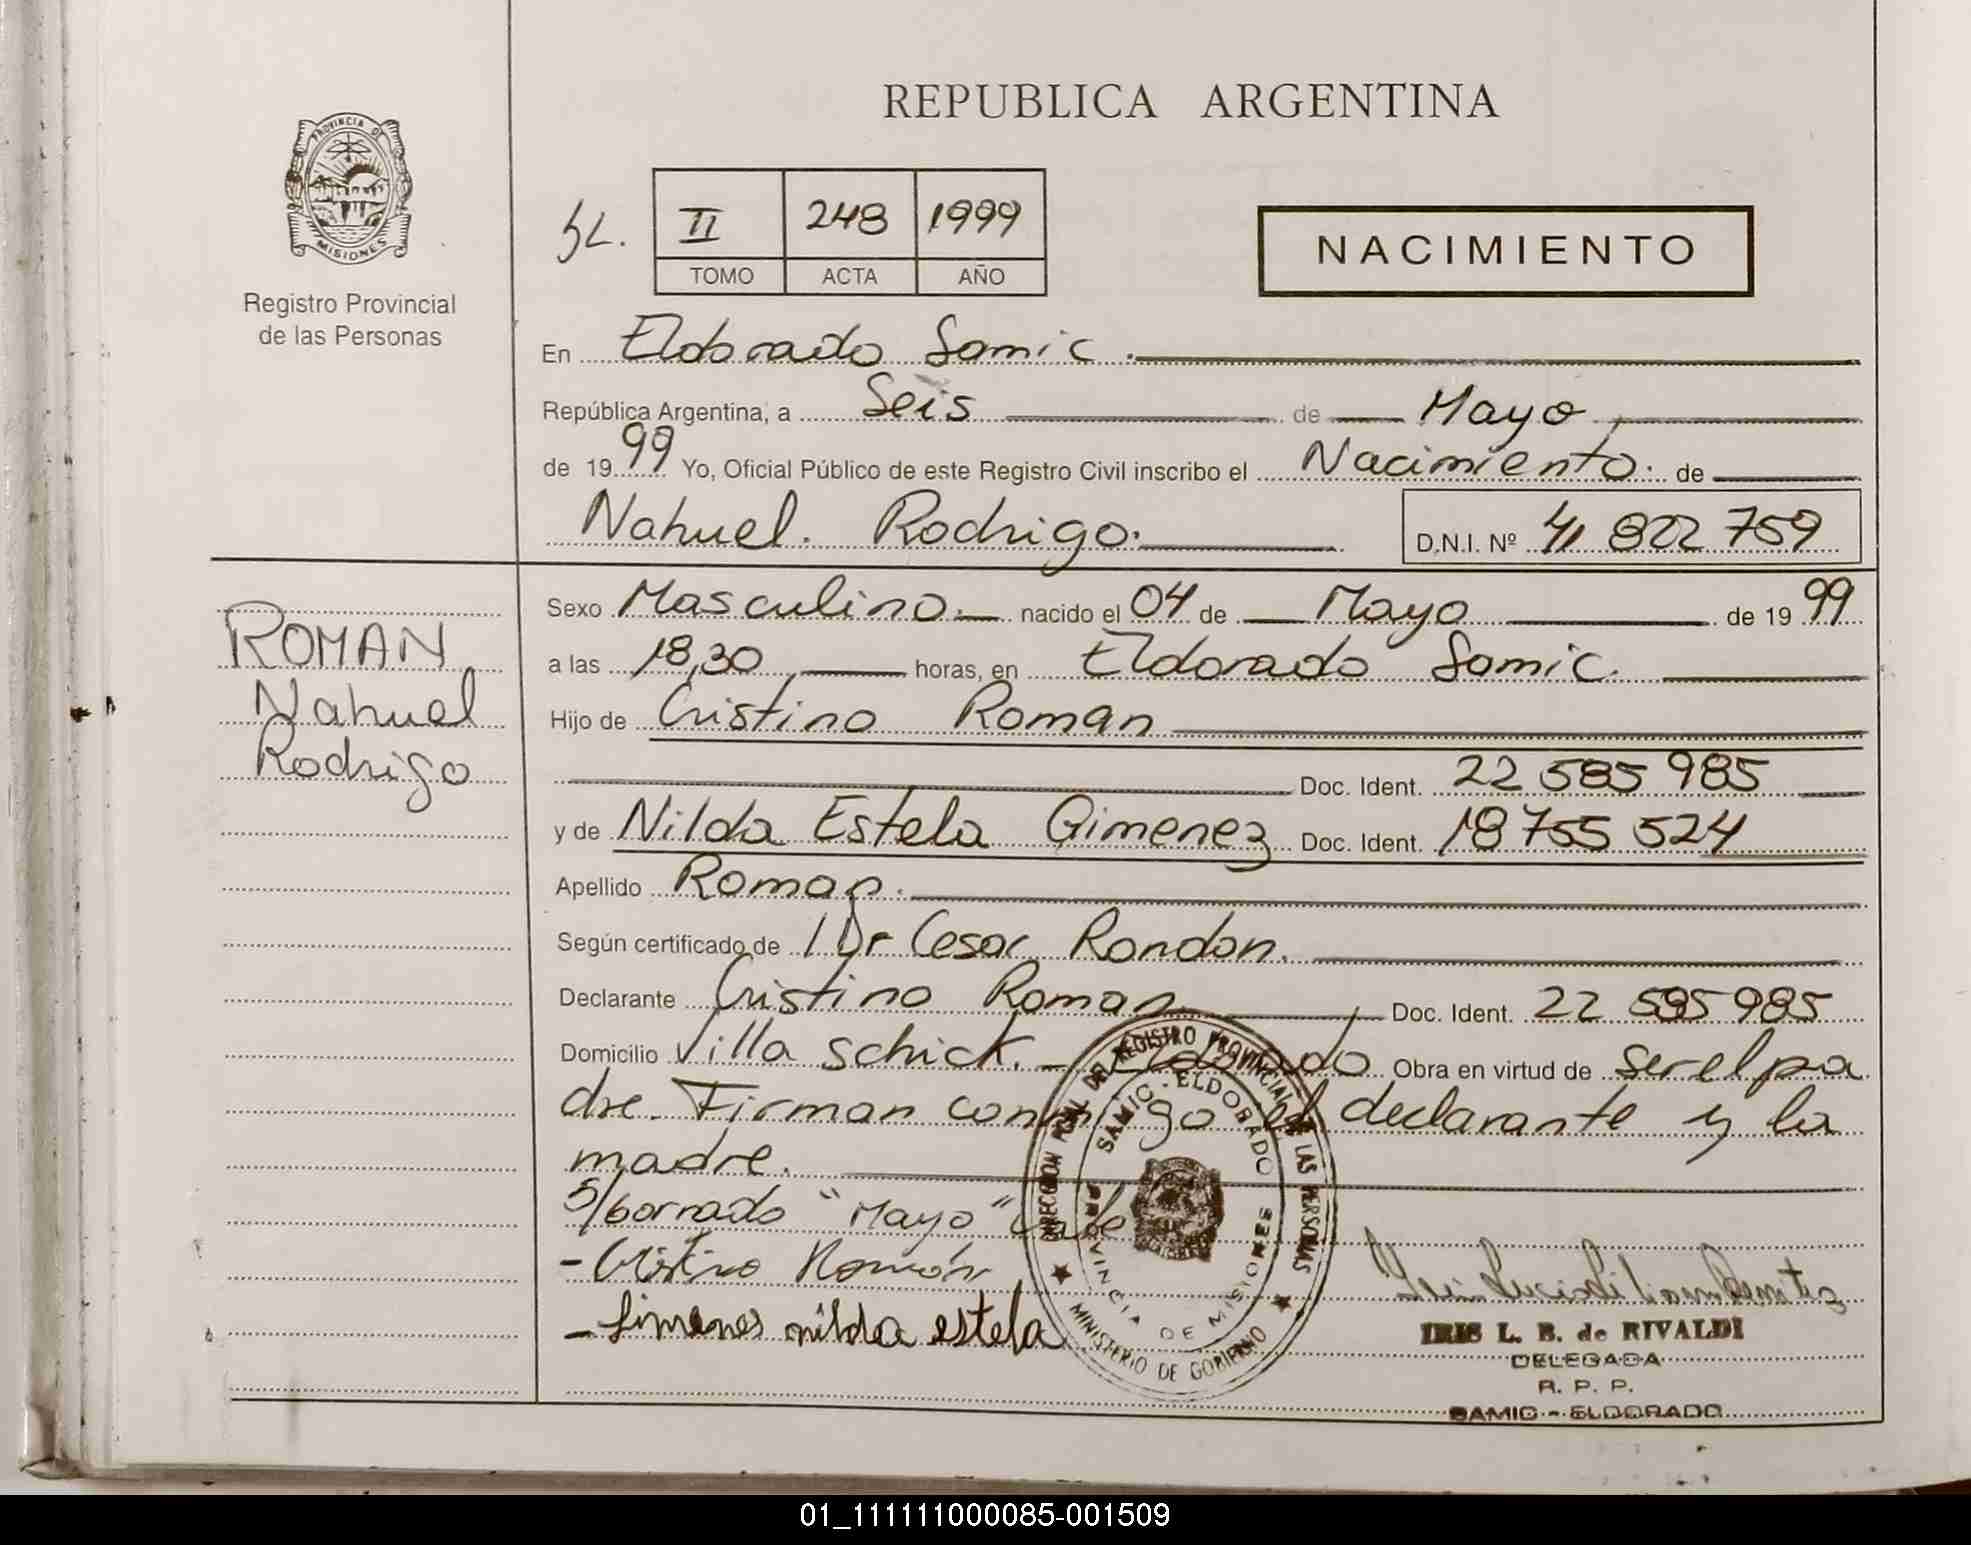 REPUBLICA ARGENTINA
PROVINCIA DE
MISIONES
Registro Provincial
de las Personas
II 248 1999
TOMO ACTA AÑO
NACIMIENTO
En Eldorado Samic.
República Argentina, a Seis de Mayo
de 1999 Yo, Oficial Público de este Registro Civil inscribo el Nacimiento. de
Nahuel. Rodrigo. D.N.I. Nº 41 822 759
ROMAN
Nahuel
Rodrigo
Sexo Masculino. nacido el 04 de Mayo de 1999
a las 18,30 horas, en Eldorado Samic.
Hijo de Cristino Roman
Doc. Ident. 22 585 985
y de Nilda Estela Gimenez Doc. Ident. 18 755 524
Apellido Roman.
Según certificado de Dr Cesar Rondon.
Declarante Cristino Roman Doc. Ident. 22 585 985
Domicilio Villa Schick. - Eldorado Obra en virtud de ser el pa
dre. Firman conmigo el declarante y la
madre.
S/borrado "Mayo" Vale
- Cristino Román
- Jimenes nilda estela
DIRECCION PCIAL DEL REGISTRO PROVINCIAL DE LAS PERSONAS
SAMIC - ELDORADO
PROVINCIA DE MISIONES
MINISTERIO DE GOBIERNO
IRIS L. B. de RIVALDI
DELEGADA
R. P. P.
SAMIC - ELDORADO
01_111111000085-001509